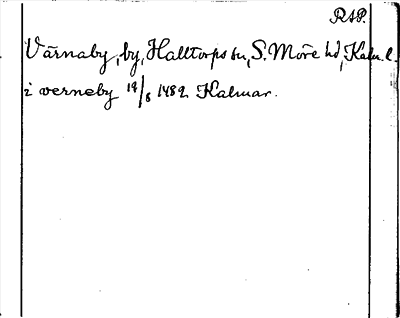 RAP.
Värnaby, by, Halltorps sn, S. Möre hd, Kalm. l.
i verneby 19/8 1482 Kalmar.